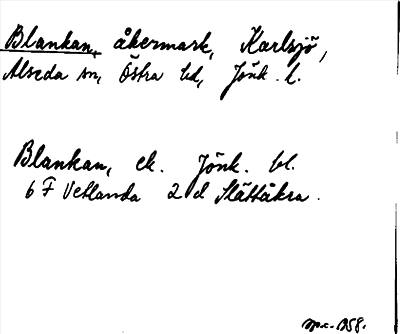 Blankan, åkermark, Karlsjö,
Alseda sn, Östra hd, Jönk. l.
Blankan, ek. Jönk. bl.
6 F Vetlanda 2 d Slättåkra.
1958.